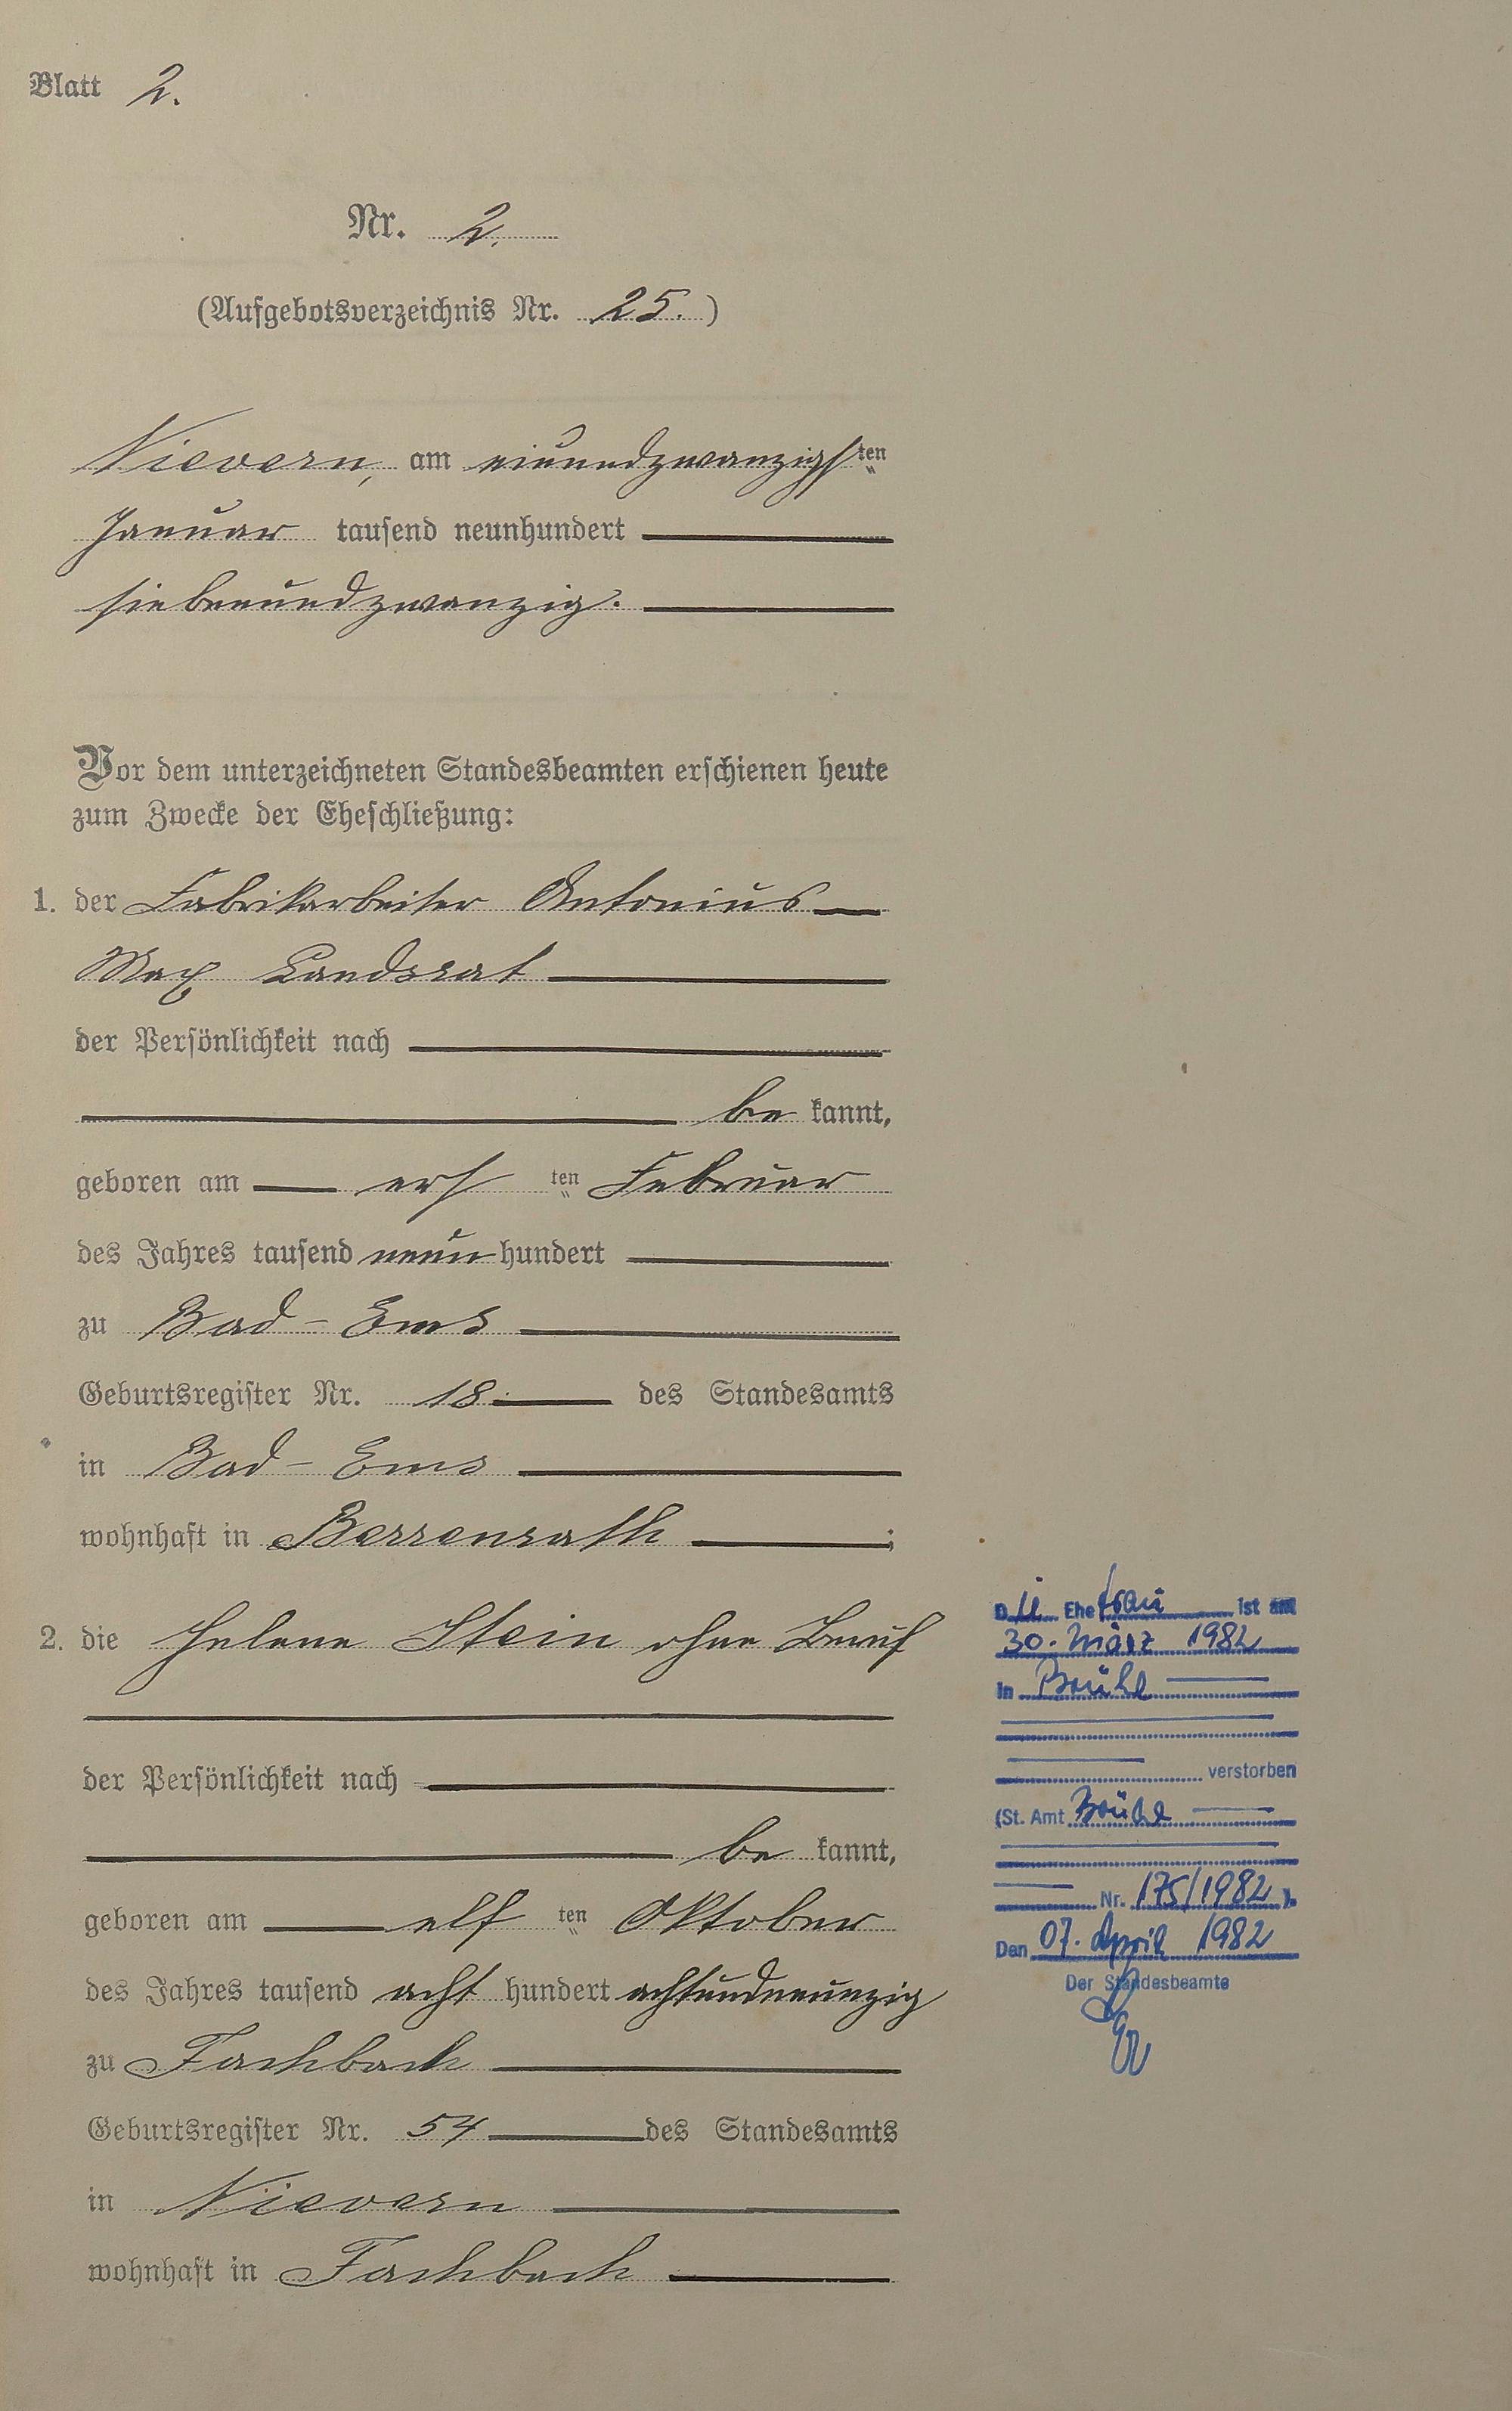 Blatt 2.
Nr. 2.
(Aufgebotsverzeichnis Nr. 25.)
Nievern, am einundzwanzigsten
Januar tausend neunhundert
siebenundzwanzig.
Vor dem unterzeichneten Standesbeamten erschienen heute
zum Zwecke der Eheschließung:
1. der Fabrikarbeiter Antonius
Max Landsrat
der Persönlichkeit nach
be kannt,
geboren am ersten Februar
des Jahres tausend neun hundert
zu Bad-Ems
Geburtsregister Nr. 18. des Standesamts
in Bad-Ems
wohnhaft in Berrenrath ;
2. die Helene Stein ohne Beruf
der Persönlichkeit nach
be kannt,
geboren am elf ten Oktober
des Jahres tausend acht hundert achtundneunzig
zu Fachbach
Geburtsregister Nr. 54 des Standesamts
in Nievern
wohnhaft in Fachbach
Die Ehefrau ist am
30. März 1982
in Brühl
verstorben
(St. Amt Brühl
Nr. 175/1982).
Den 07. April 1982
Der Standesbeamte